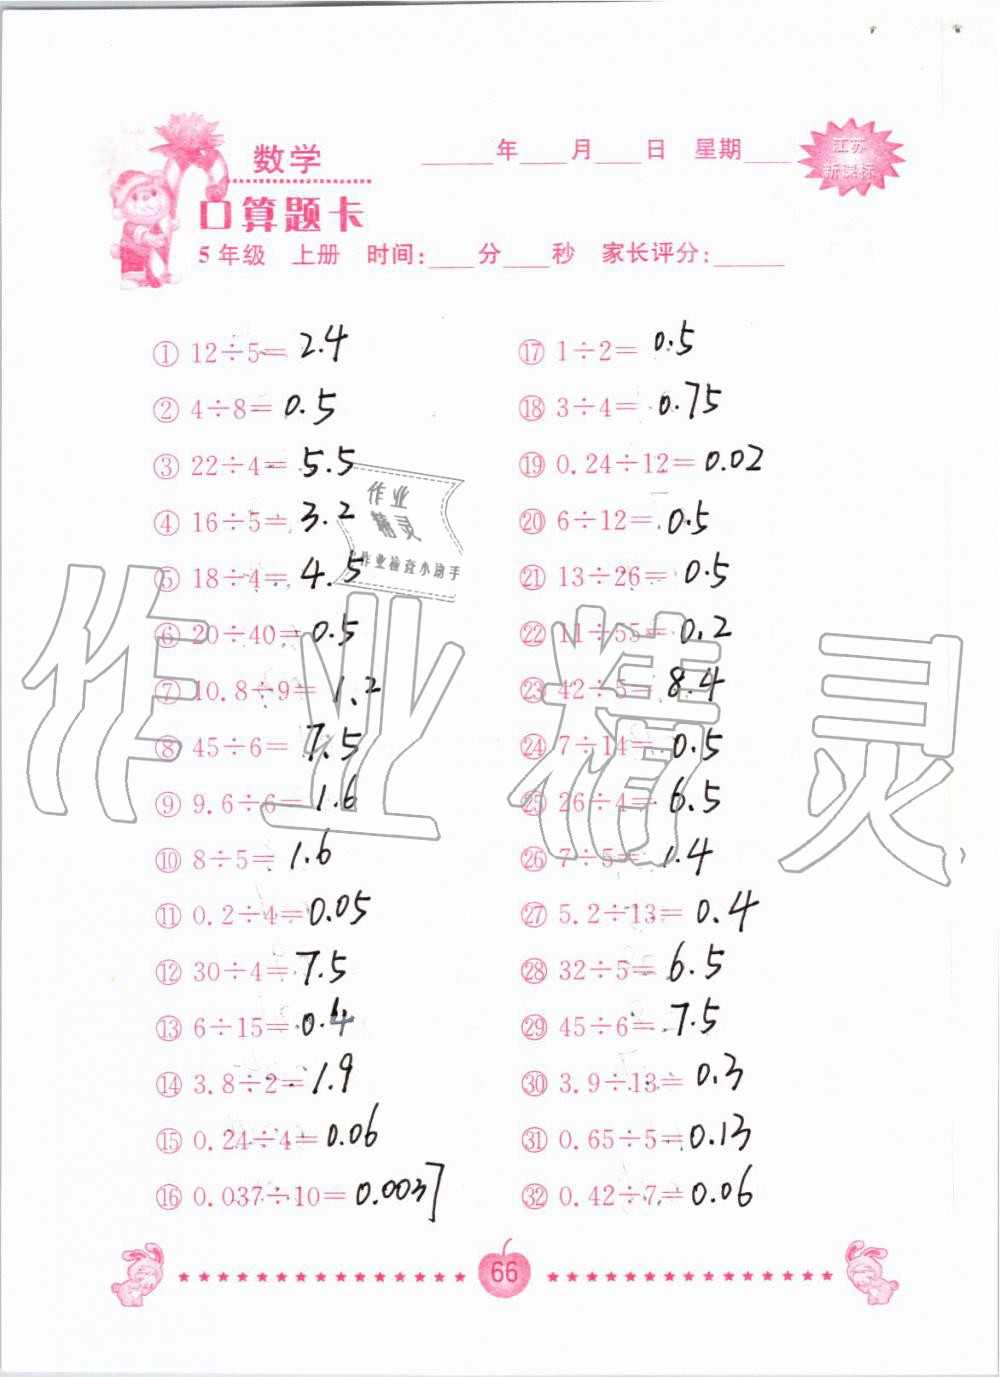 数学
____年____月____日 星期____
江苏
新课标
口算题卡
5年级 上册 时间:____分____秒 家长评分:____
① 12÷5= 2.4
② 4÷8= 0.5
③ 22÷4= 5.5
④ 16÷5= 3.2
⑤ 18÷4= 4.5
⑥ 20÷40= 0.5
⑦ 10.8÷9= 1.2
⑧ 45÷6= 7.5
⑨ 9.6÷6= 1.6
⑩ 8÷5= 1.6
⑪ 0.2÷4= 0.05
⑫ 30÷4= 7.5
⑬ 6÷15= 0.4
⑭ 3.8÷2= 1.9
⑮ 0.24÷4= 0.06
⑯ 0.037÷10= 0.0037
⑰ 1÷2= 0.5
⑱ 3÷4= 0.75
⑲ 0.24÷12= 0.02
⑳ 6÷12= 0.5
㉑ 13÷26= 0.5
㉒ 11÷55= 0.2
㉓ 42÷5= 8.4
㉔ 7÷14= 0.5
㉕ 26÷4= 6.5
㉖ 7÷5= 1.4
㉗ 5.2÷13= 0.4
㉘ 32÷5= 6.5
㉙ 45÷6= 7.5
㉚ 3.9÷13= 0.3
㉛ 0.65÷5= 0.13
㉜ 0.42÷7= 0.06
作业
精灵
作业检查小助手
作业精灵
66